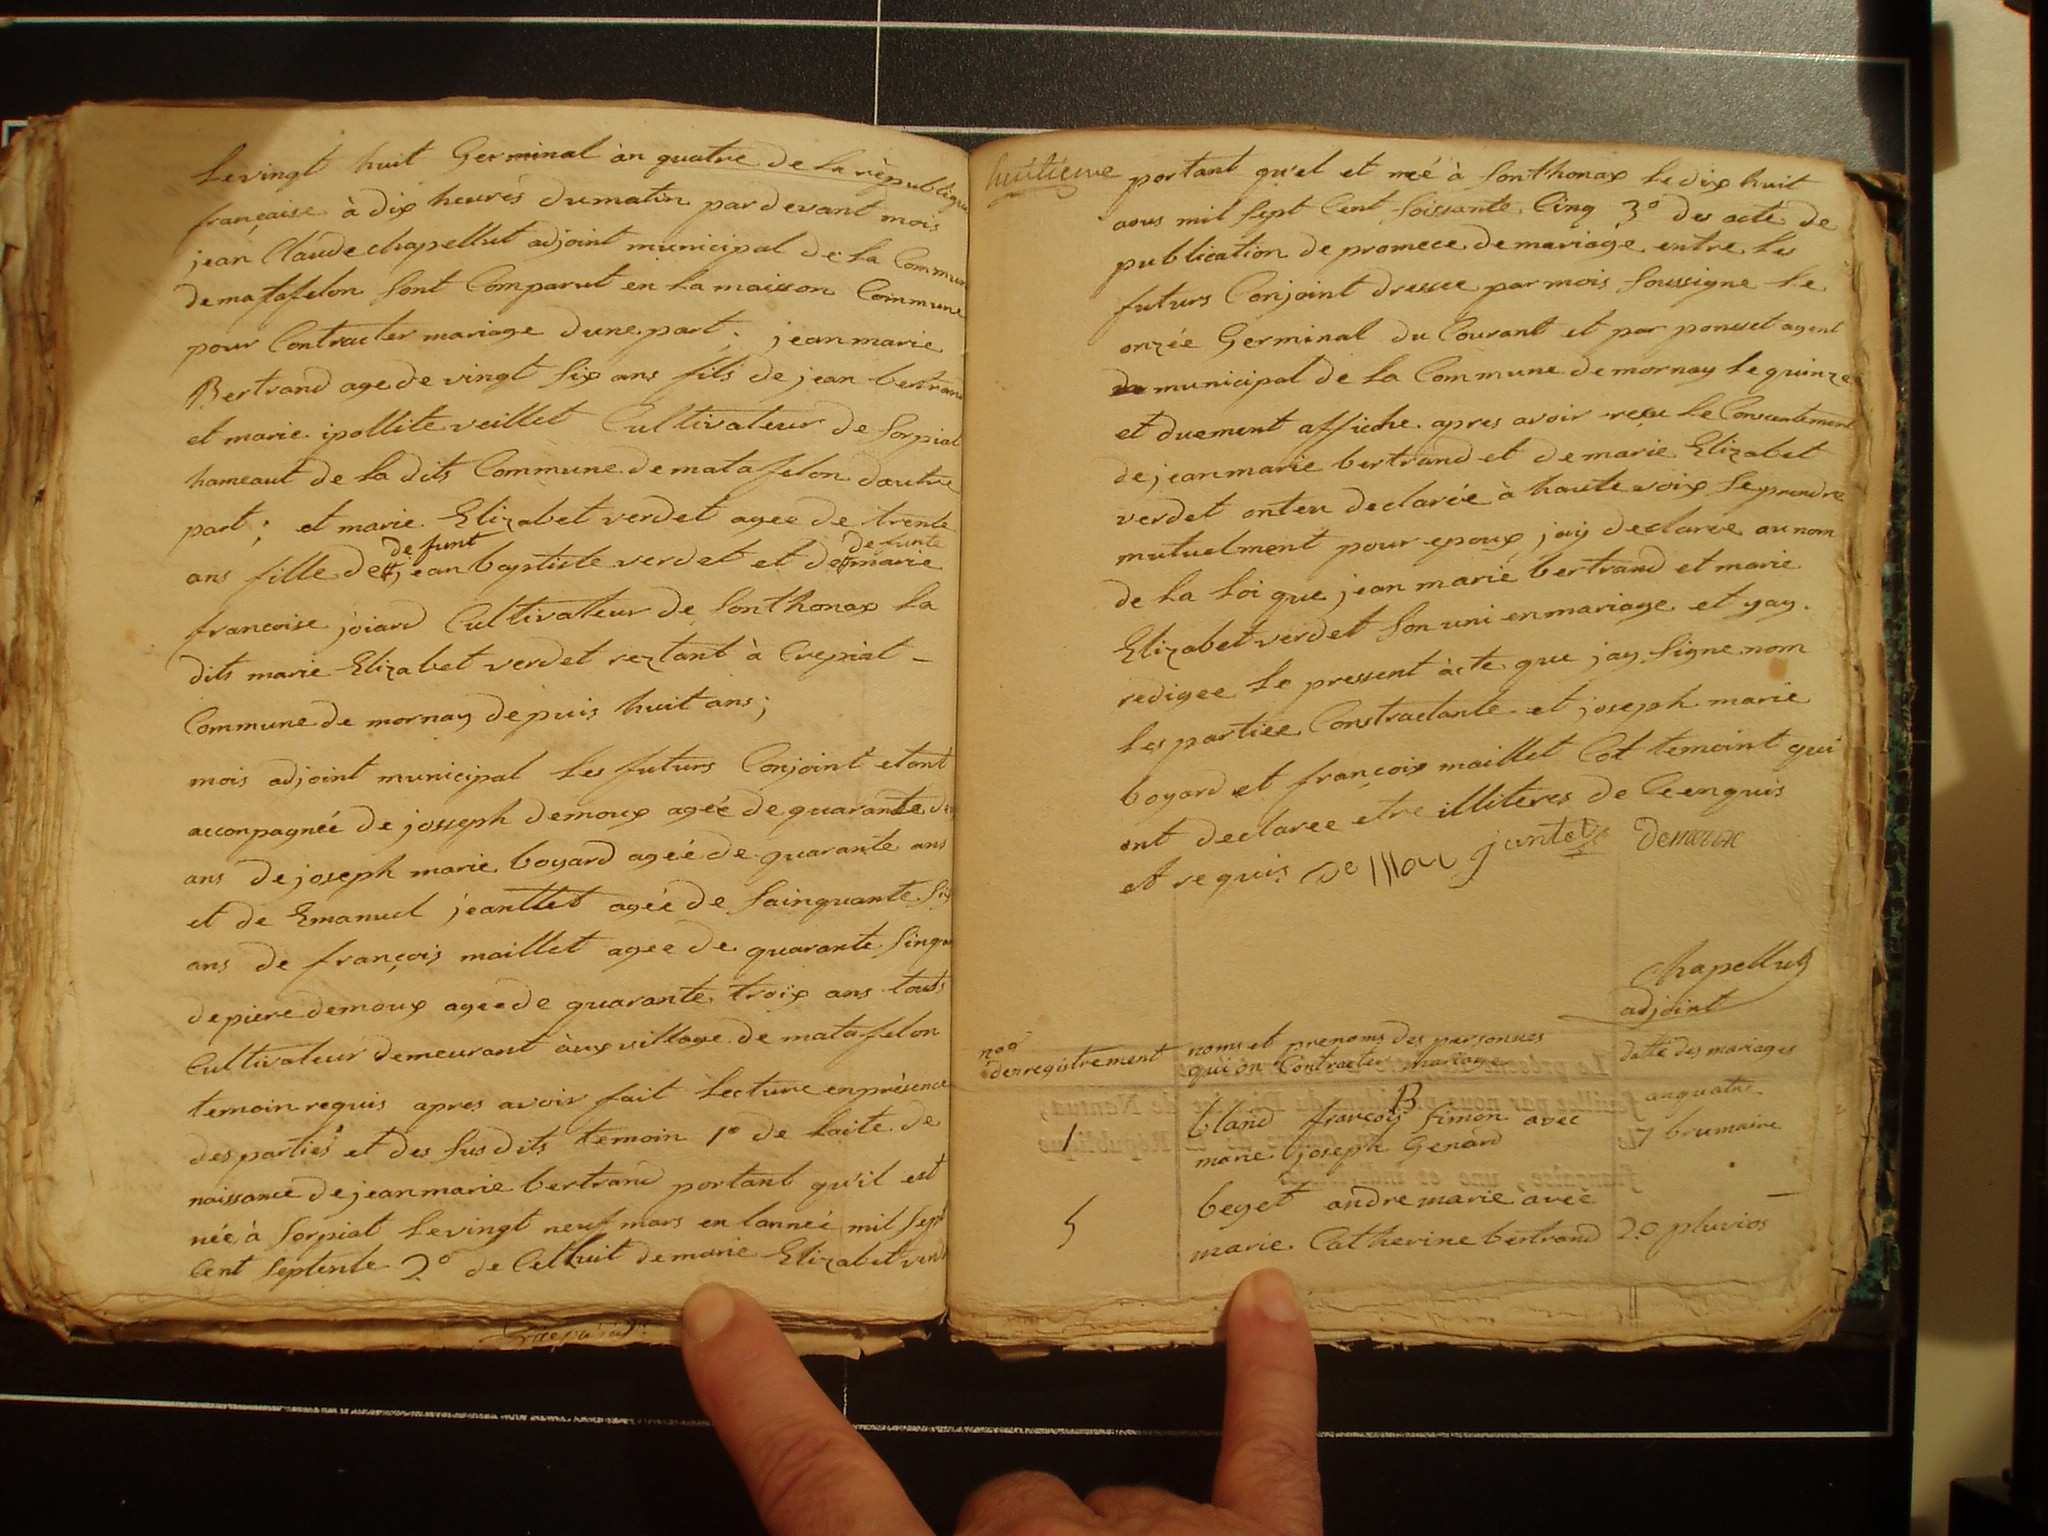 Le vingt huit Germinal àn quatre de la rèpublique
française à dix heurés du matin par devant mois
jean Claude chapellut adjoint municipal de la Commune
de matafelon sont Comparut en la maison Commune
pour Contracter mariage dune part ; jean marie
Bertrand age de vingt six ans fils de jean bertrand
et marie ipollite veillet Cultivateur de Sorpiat
hameaut de la dits Commune de matafelon dautre
part ; et marie Elizabet verdet agee de trente
defunt defunte
ans fille de jean baptiste verdet et de marie
francoise joiard Cultivateur de Sonthonax la
dits marie Elizabet verdet reztant à Crepiat -
Commune de mornay depuis huit ans ;
mois adjoint municipal les futurs Conjoint etant
acconpagnée de josseph demoux agée de quarante
ans de joseph marie boyard agée de quarante ans
et de Emanuel jeanttet agée de Sainquante six
ans de françois maillet agee de quarante sinq
de piere demoux agee de quarante troix ans touts
Cultivateur demeurant àux village de matafelon
temoin requis apres avoir fait Lecture en présence
des partiés et des susdits temoin 1º de laite de
naissance de jean marie bertrand portant qu'il est
née à Sorpiat le vingt neuf mars en lanneé mil sept
Cent septente 2º de Celluit de marie Elizabet verdet
huitieme
portant qu'el et neé à Sonthonax le dix huit
aous mil sept Cent soissante Cinq 3º des acte de
publication de promece de mariage entre les
futurs Conjoint dressee par mois soussigne le
onzée Germinal du Courant et par ponsset agent
municipal de la Commune de mornay le quinze
et duement affiche apres avoir reçu le Consentement
de jean marie bertrand et de marie Elizabet
verdet onteu declarée à haute voix se prendre
mutuelment pour epoux jay declaree au nom
de la Loi que jean marie bertrand et marie
Elizabet verdet son uni en mariage et yay
redigee le pressent àcte que jay signe nom
les partiee Constractante et joseph marie
boyard et françoix maillet Cot temoint qui
ont declaree etre illiteres de Ce enquis
et requis demou jantet demoux
Chapellut
adjoint
noo
denregistrement
noms et prenoms des personnes
qui on Contracter mariage
datte des mariages
B
an quatre
1 bland françois Simon avec 7 brumaire
marie joseph Genard
5 beget andre marie avec -
marie Catherine bertrand 20 pluvios